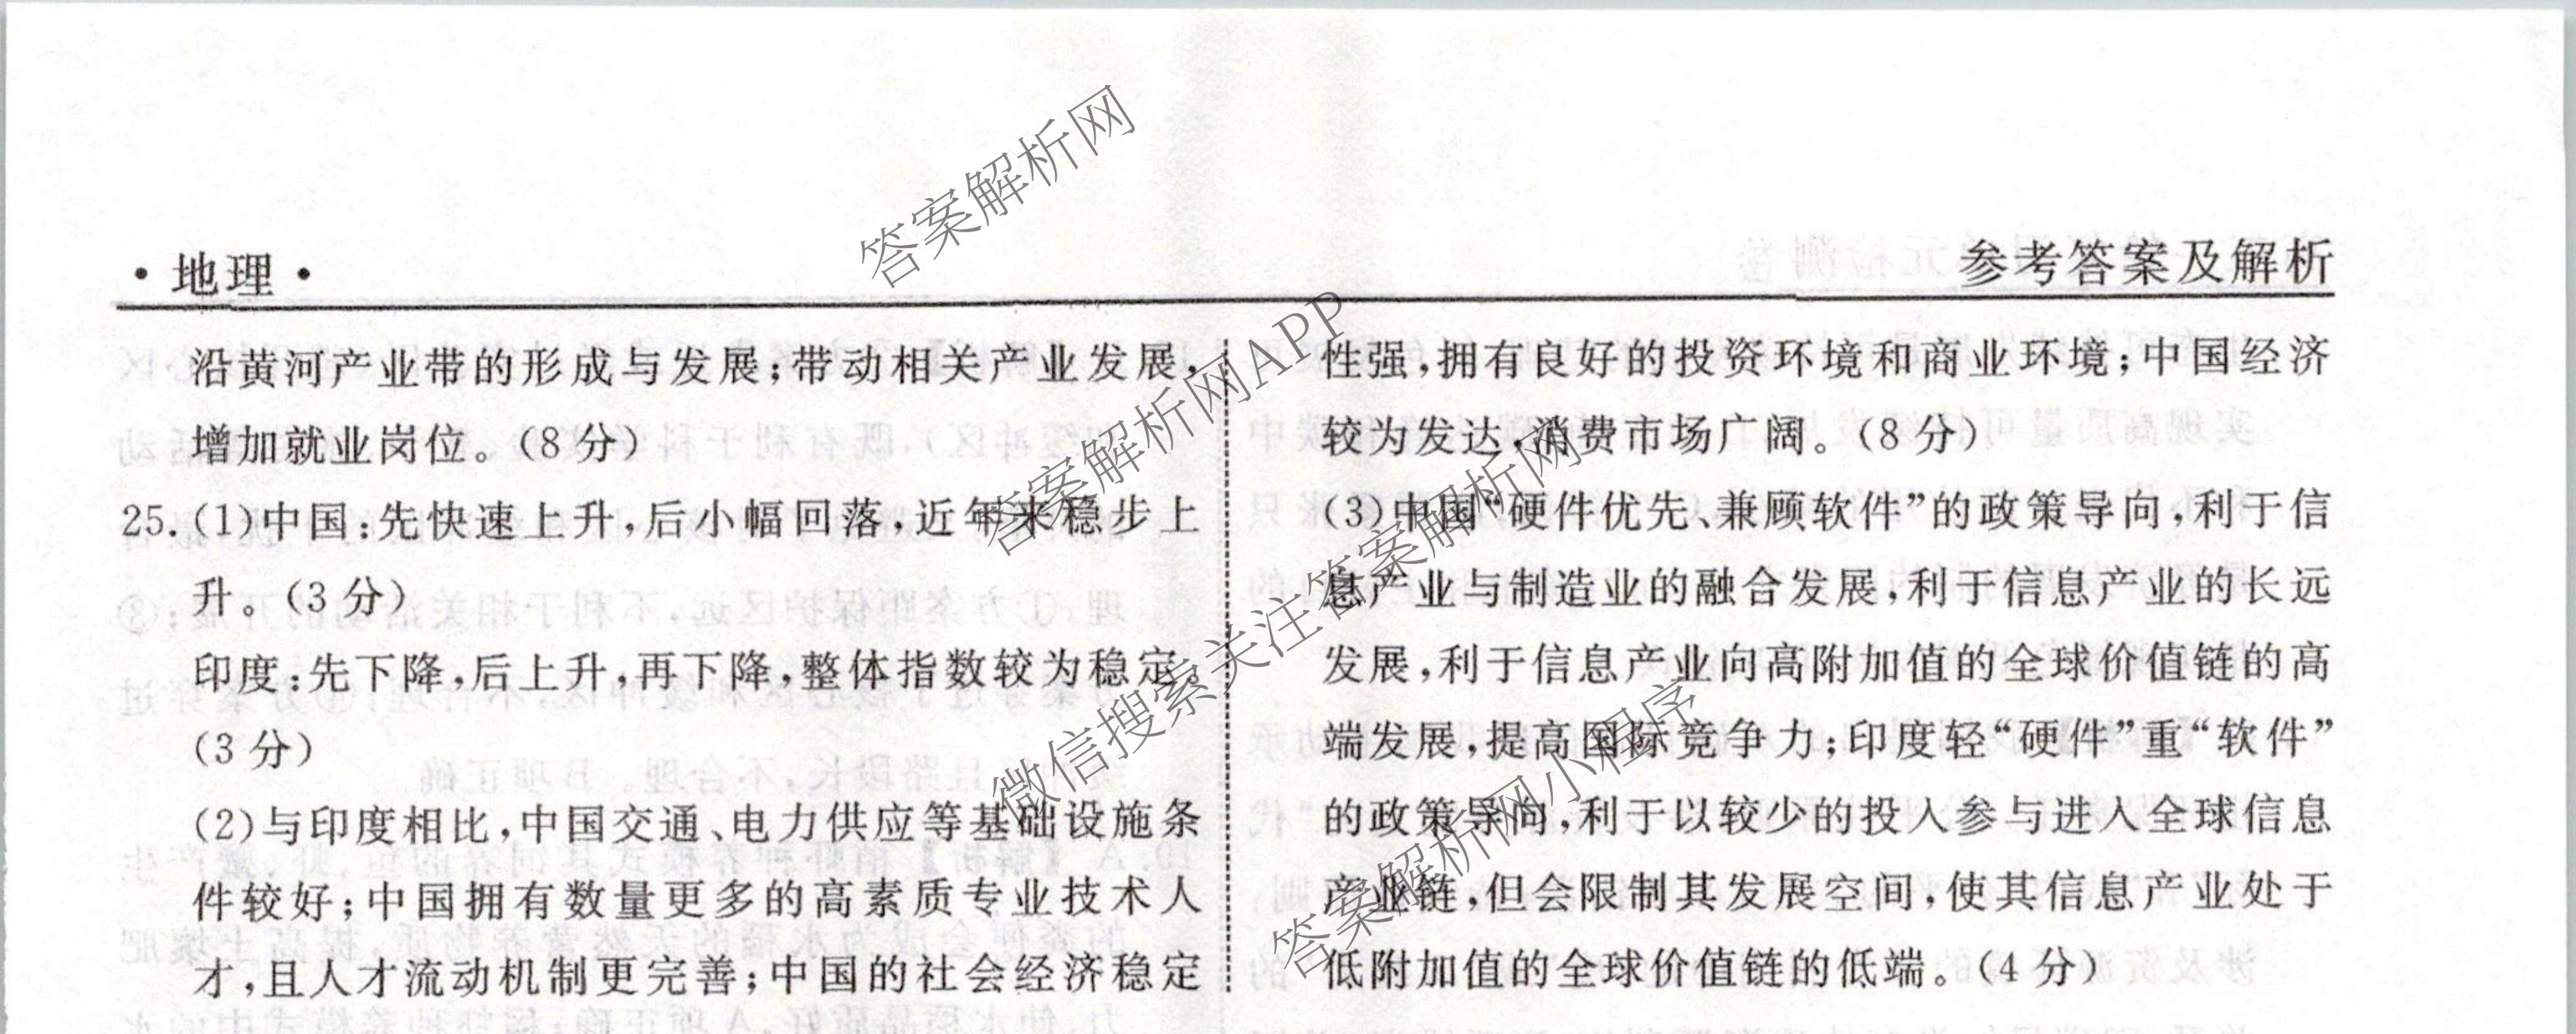 ·地理·
参考答案及解析
沿黄河产业带的形成与发展;带动相关产业发展,
增加就业岗位。(8分)
25.(1)中国:先快速上升,后小幅回落,近年来稳步上
升。(3分)
印度:先下降,后上升,再下降,整体指数较为稳定。
(3分)
(2)与印度相比,中国交通、电力供应等基础设施条
件较好;中国拥有数量更多的高素质专业技术人
才,且人才流动机制更完善;中国的社会经济稳定
性强,拥有良好的投资环境和商业环境;中国经济
较为发达,消费市场广阔。(8分)
(3)中国“硬件优先、兼顾软件”的政策导向,利于信
息产业与制造业的融合发展,利于信息产业的长远
发展,利于信息产业向高附加值的全球价值链的高
端发展,提高国际竞争力;印度轻“硬件”重“软件”
的政策导向,利于以较少的投入参与进入全球信息
产业链,但会限制其发展空间,使其信息产业处于
低附加值的全球价值链的低端。(4分)
答案解析网
答案解析网APP
微信搜索关注答案解析网
答案解析网小程序